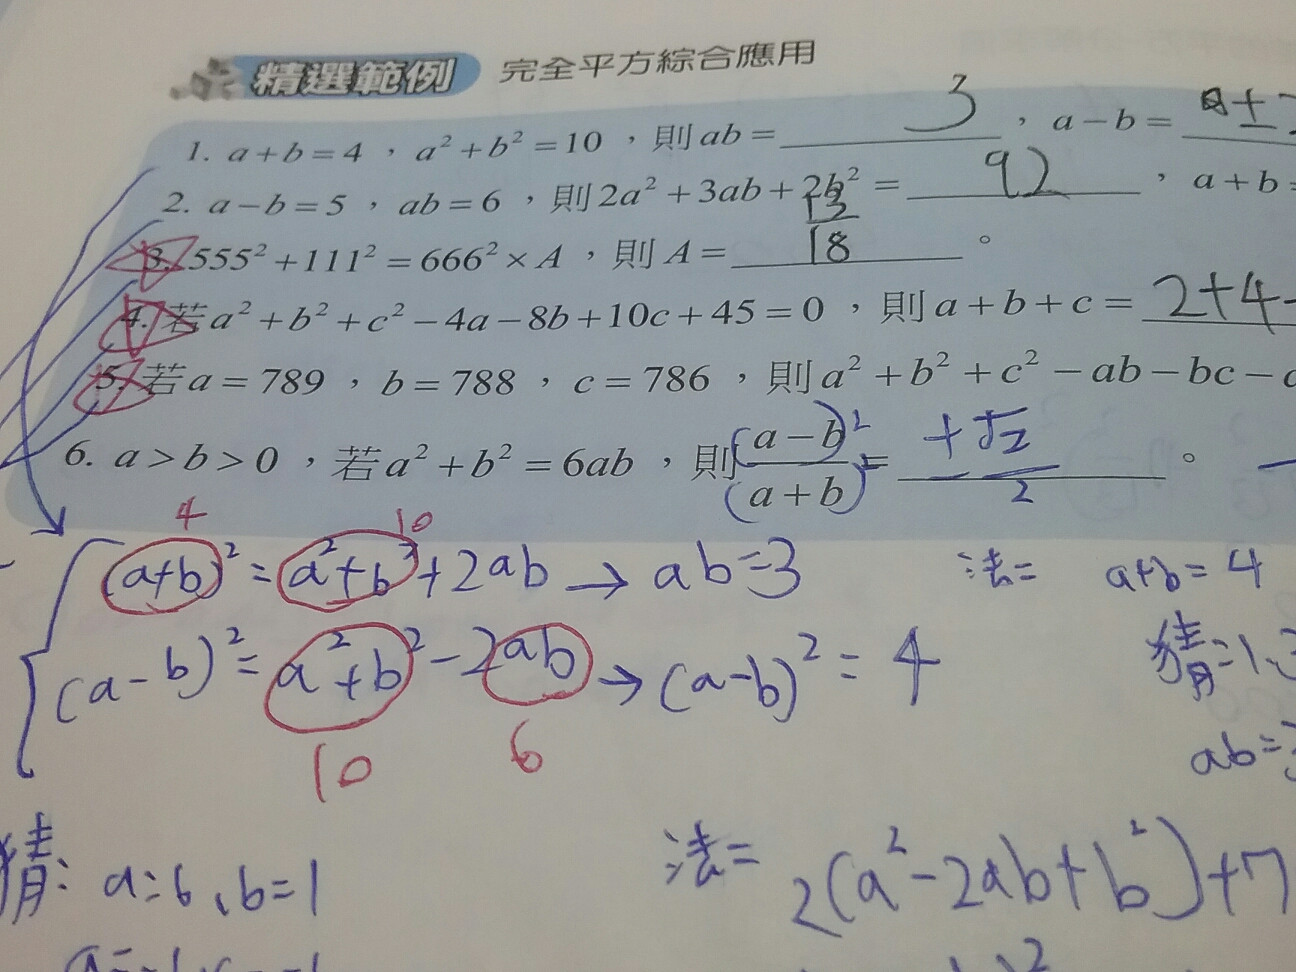 精選範例 完全平方綜合應用
1. a+b=4，a²+b²=10，則ab= 3 ，a−b= ±
2. a−b=5，ab=6，則2a²+3ab+2b²= 92 ，a+b=
3. 555²+111²=666²×A，則A= 13/18 。
4. 若a²+b²+c²−4a−8b+10c+45=0，則a+b+c= 2+4-
5. 若a=789，b=788，c=786，則a²+b²+c²−ab−bc−
6. a>b>0，若a²+b²=6ab，則(a−b)²/(a+b)²= +√2/2 。
4 10
(a+b)²=a²+b²+2ab→ab=3 法= a+b=4
(a-b)²=a²+b²-2ab→(a-b)²=4 猜=1、3
10 6 ab=3
猜: a=6、b=1 法= 2(a²-2ab+b²)+7